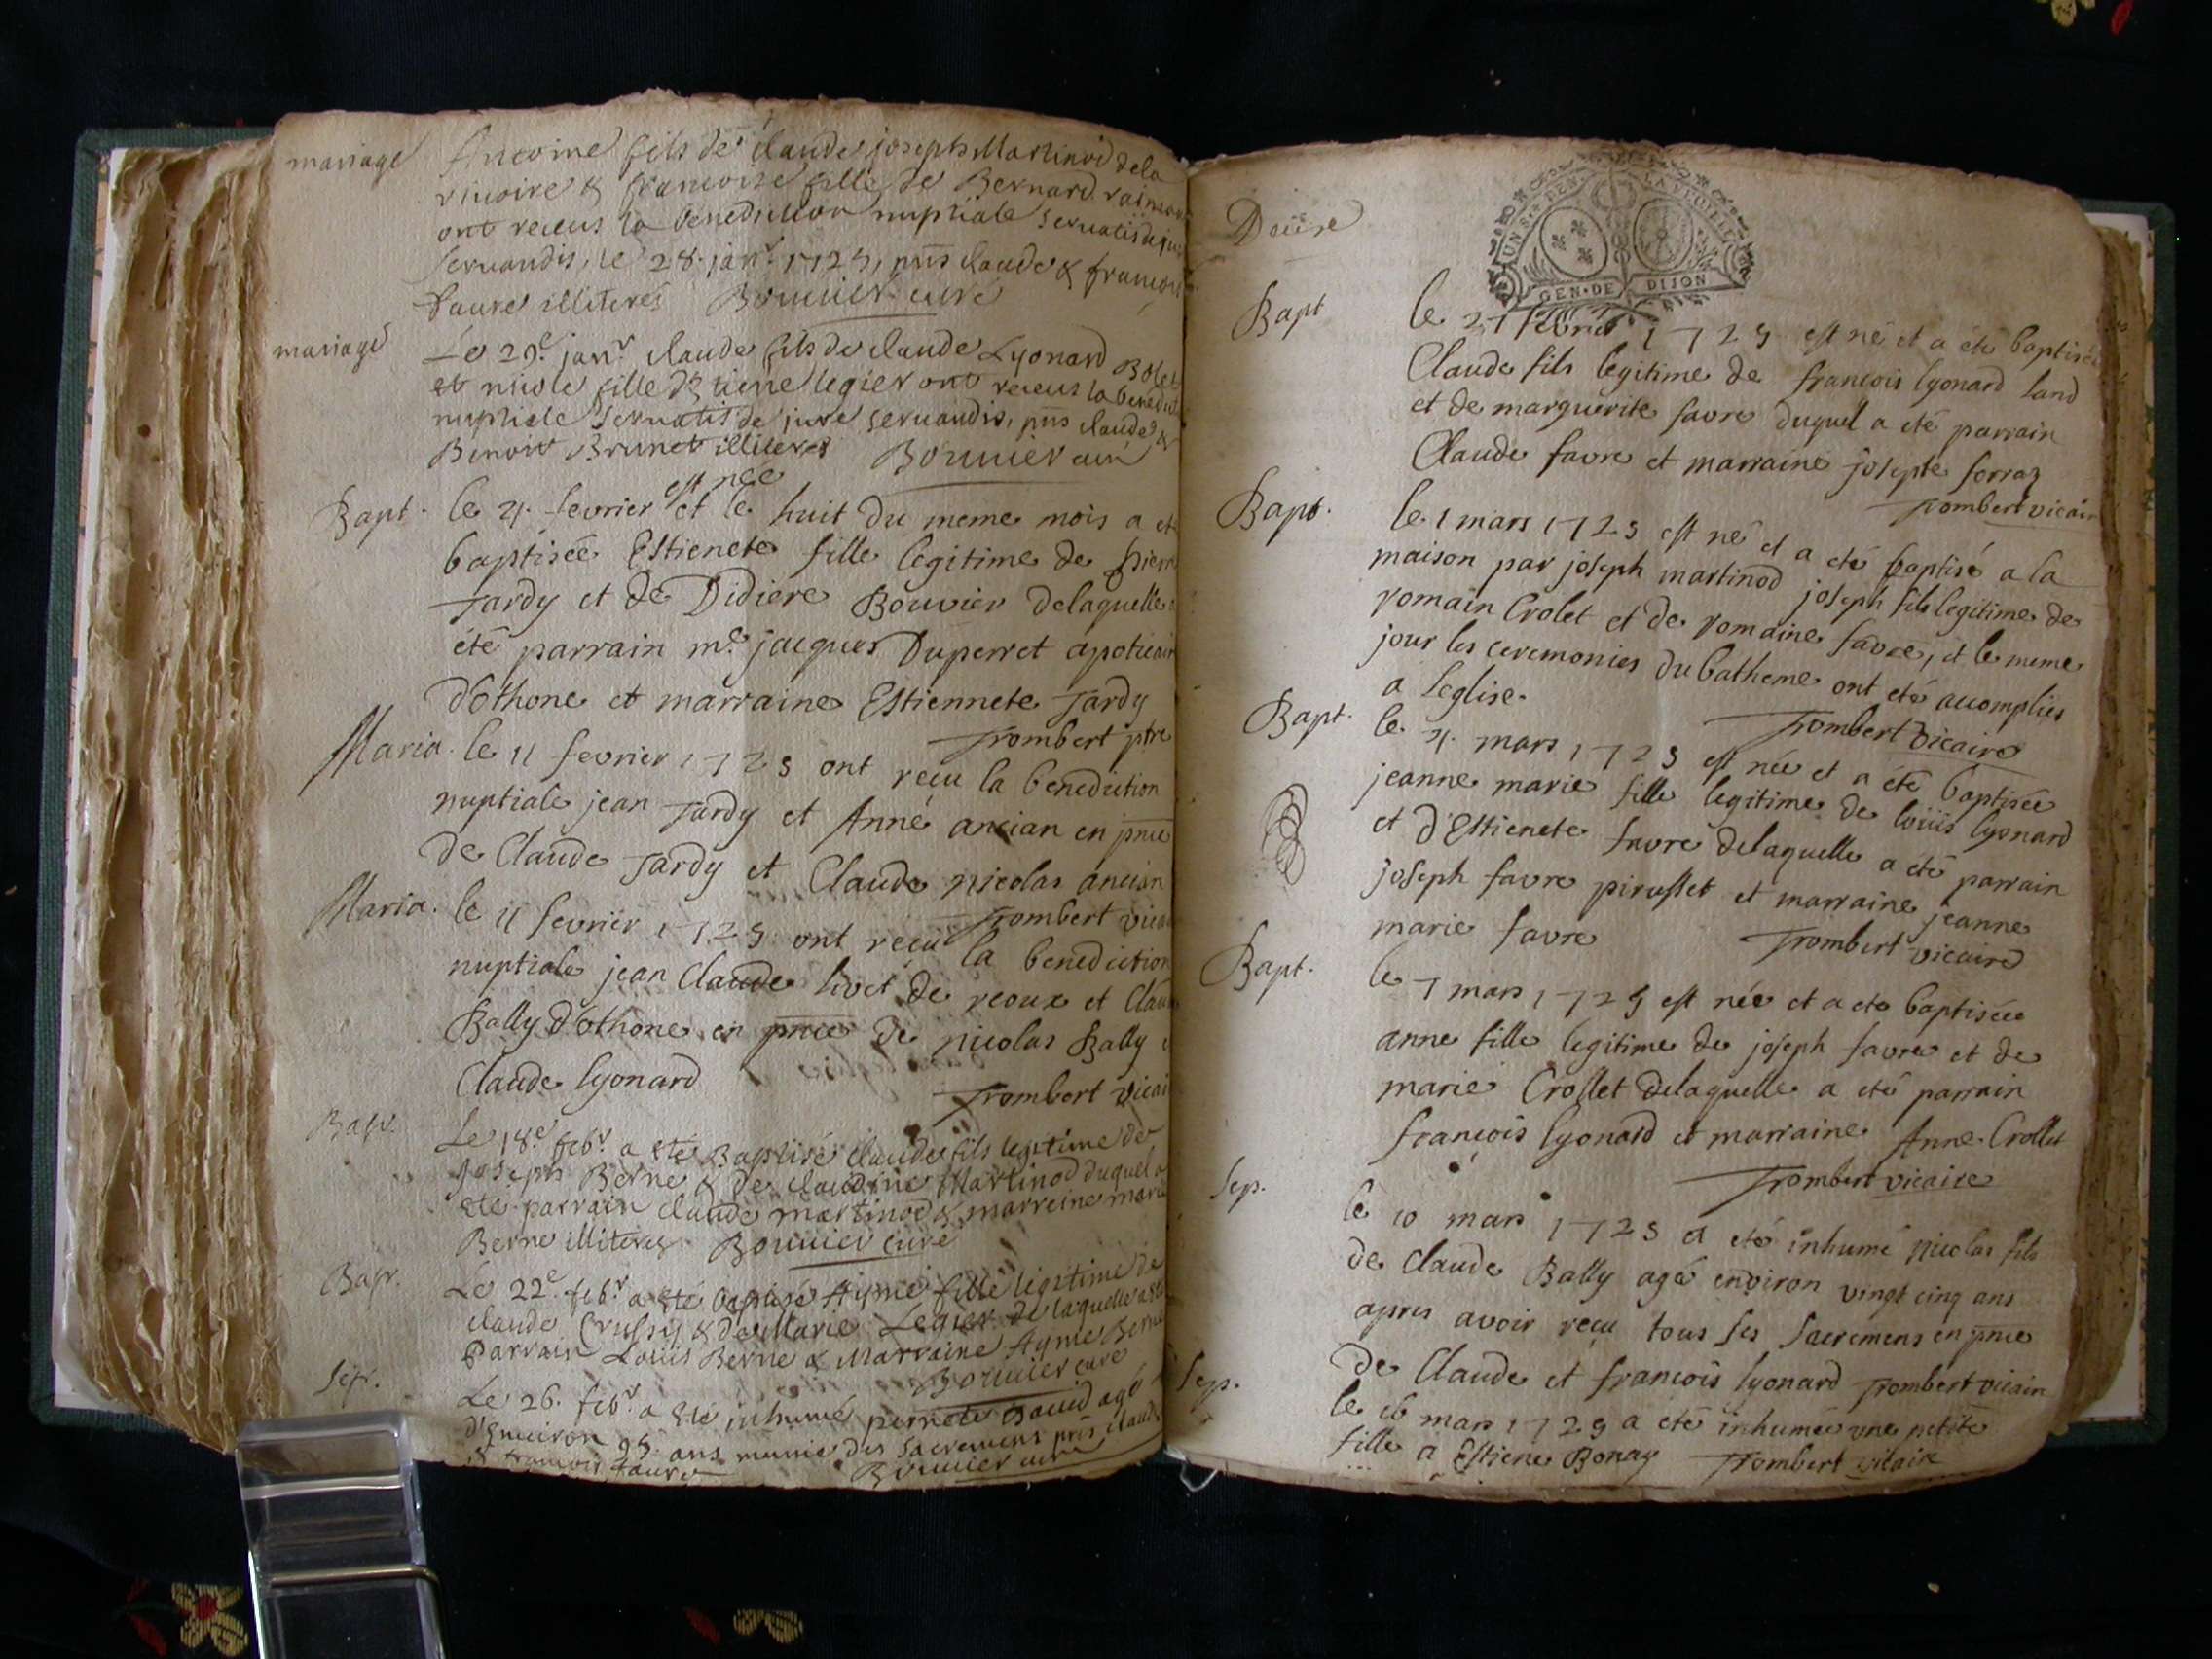 mariage Antoine fils de claude joseph Martinod dela
rivoire & francoise fille de Bernard
ont receus la benediction nuptiale servatis de jure
servandis, le 28. janr. 1725, pñs claude & francois
faure illiterés Bouvier curé
mariage Le 29e. janr. claude fils de claude Lyonard Bolet
et nicole fille legier ont receus la benedict
nuptiale servatis de jure servandis, pñs claude &
Benoit Brunet illiteres Bouvier curé
est née
Bapt. le 4. fevrier et le huit du meme mois a eté
baptisée Estienete fille legitime de pierre
Tardy et de Didiere Bouvier delaquelle a
été parrain me. jacques Duperret apoticair
d'othone et marraine Estiennete Tardy
Trombert ptre
Maria. le 11 fevrier 1725 ont reçu la benediction
nuptiale jean Tardy et Anne ancian en pñce
de Claude Tardy et Claude nicolas ancian
Trombert vicai
Maria. le 11 fevrier 1725 ont reçu la benediction
nuptiale jean Claude livet de reoux et Clau
Bally d'othone en pñce de nicolas Bally e
Claude lyonard
Trombert vicai
Bapt. Le 18e. febr. a eté Baptisé claude fils legitime de
joseph Berne & de claudine Martinod duquel a
eté parrain claude martinod & marreine marie
Berne illiteres Bouvier curé
Bapt. Le 22e. febr. a eté baptisé Aymé fille legitime de
claude Crussy & de Marie Legier de laquelle a eté
Parrain Louis Berne & Marraine Ayme Berne
Bouvier curé
Sep. Le 26. febr. a eté inhumé pernete agé
d'environ 95 ans munie des sacremens pñs claude
& francois faure Bouvier curé
Deüse
UN·S· DEN· LA FEUILLE
GEN·DE DIJON
Bapt le 27 fevrier 1725 est né et a été baptisé
Claude fils legitime de francois lyonard land
et de marguerite favre duquel a eté parrain
Claude favre et marraine josepte ferraz
Trombert vicair
Bapt. le 1 mars 1725 est né et a eté baptisé a la
maison par joseph martinod joseph fils legitime de
romain Crolet et de romaine favre, et le meme
jour les ceremonies du batheme ont eté acomplies
a leglise.
Trombert vicaire
Bapt. le 4. mars 1725 est née et a été baptisée
jeanne marie fille legitime de loüis lyonard
et d'Estienete favre delaquelle a été parrain
joseph favre pirosset et marraine jeanne
marie favre Trombert vicaire
Bapt. le 7 mars 1725 est née et a eté baptisée
anne fille legitime de joseph favre et de
marie Crollet delaquelle a eté parrain
françois lyonard et marraine Anne Crollet
Trombert vicaire
Sep. le 10 mars 1725 a eté inhumé nicolas fils
de Claude Bally agé environ vingt cinq ans
apres avoir reçu tous ses sacremens en pñce
de Claude et francois lyonard Trombert vicair
Sep. le 16 mars 1725 a eté inhumée une petite
fille a Estiene Bonaz Trombert vicair